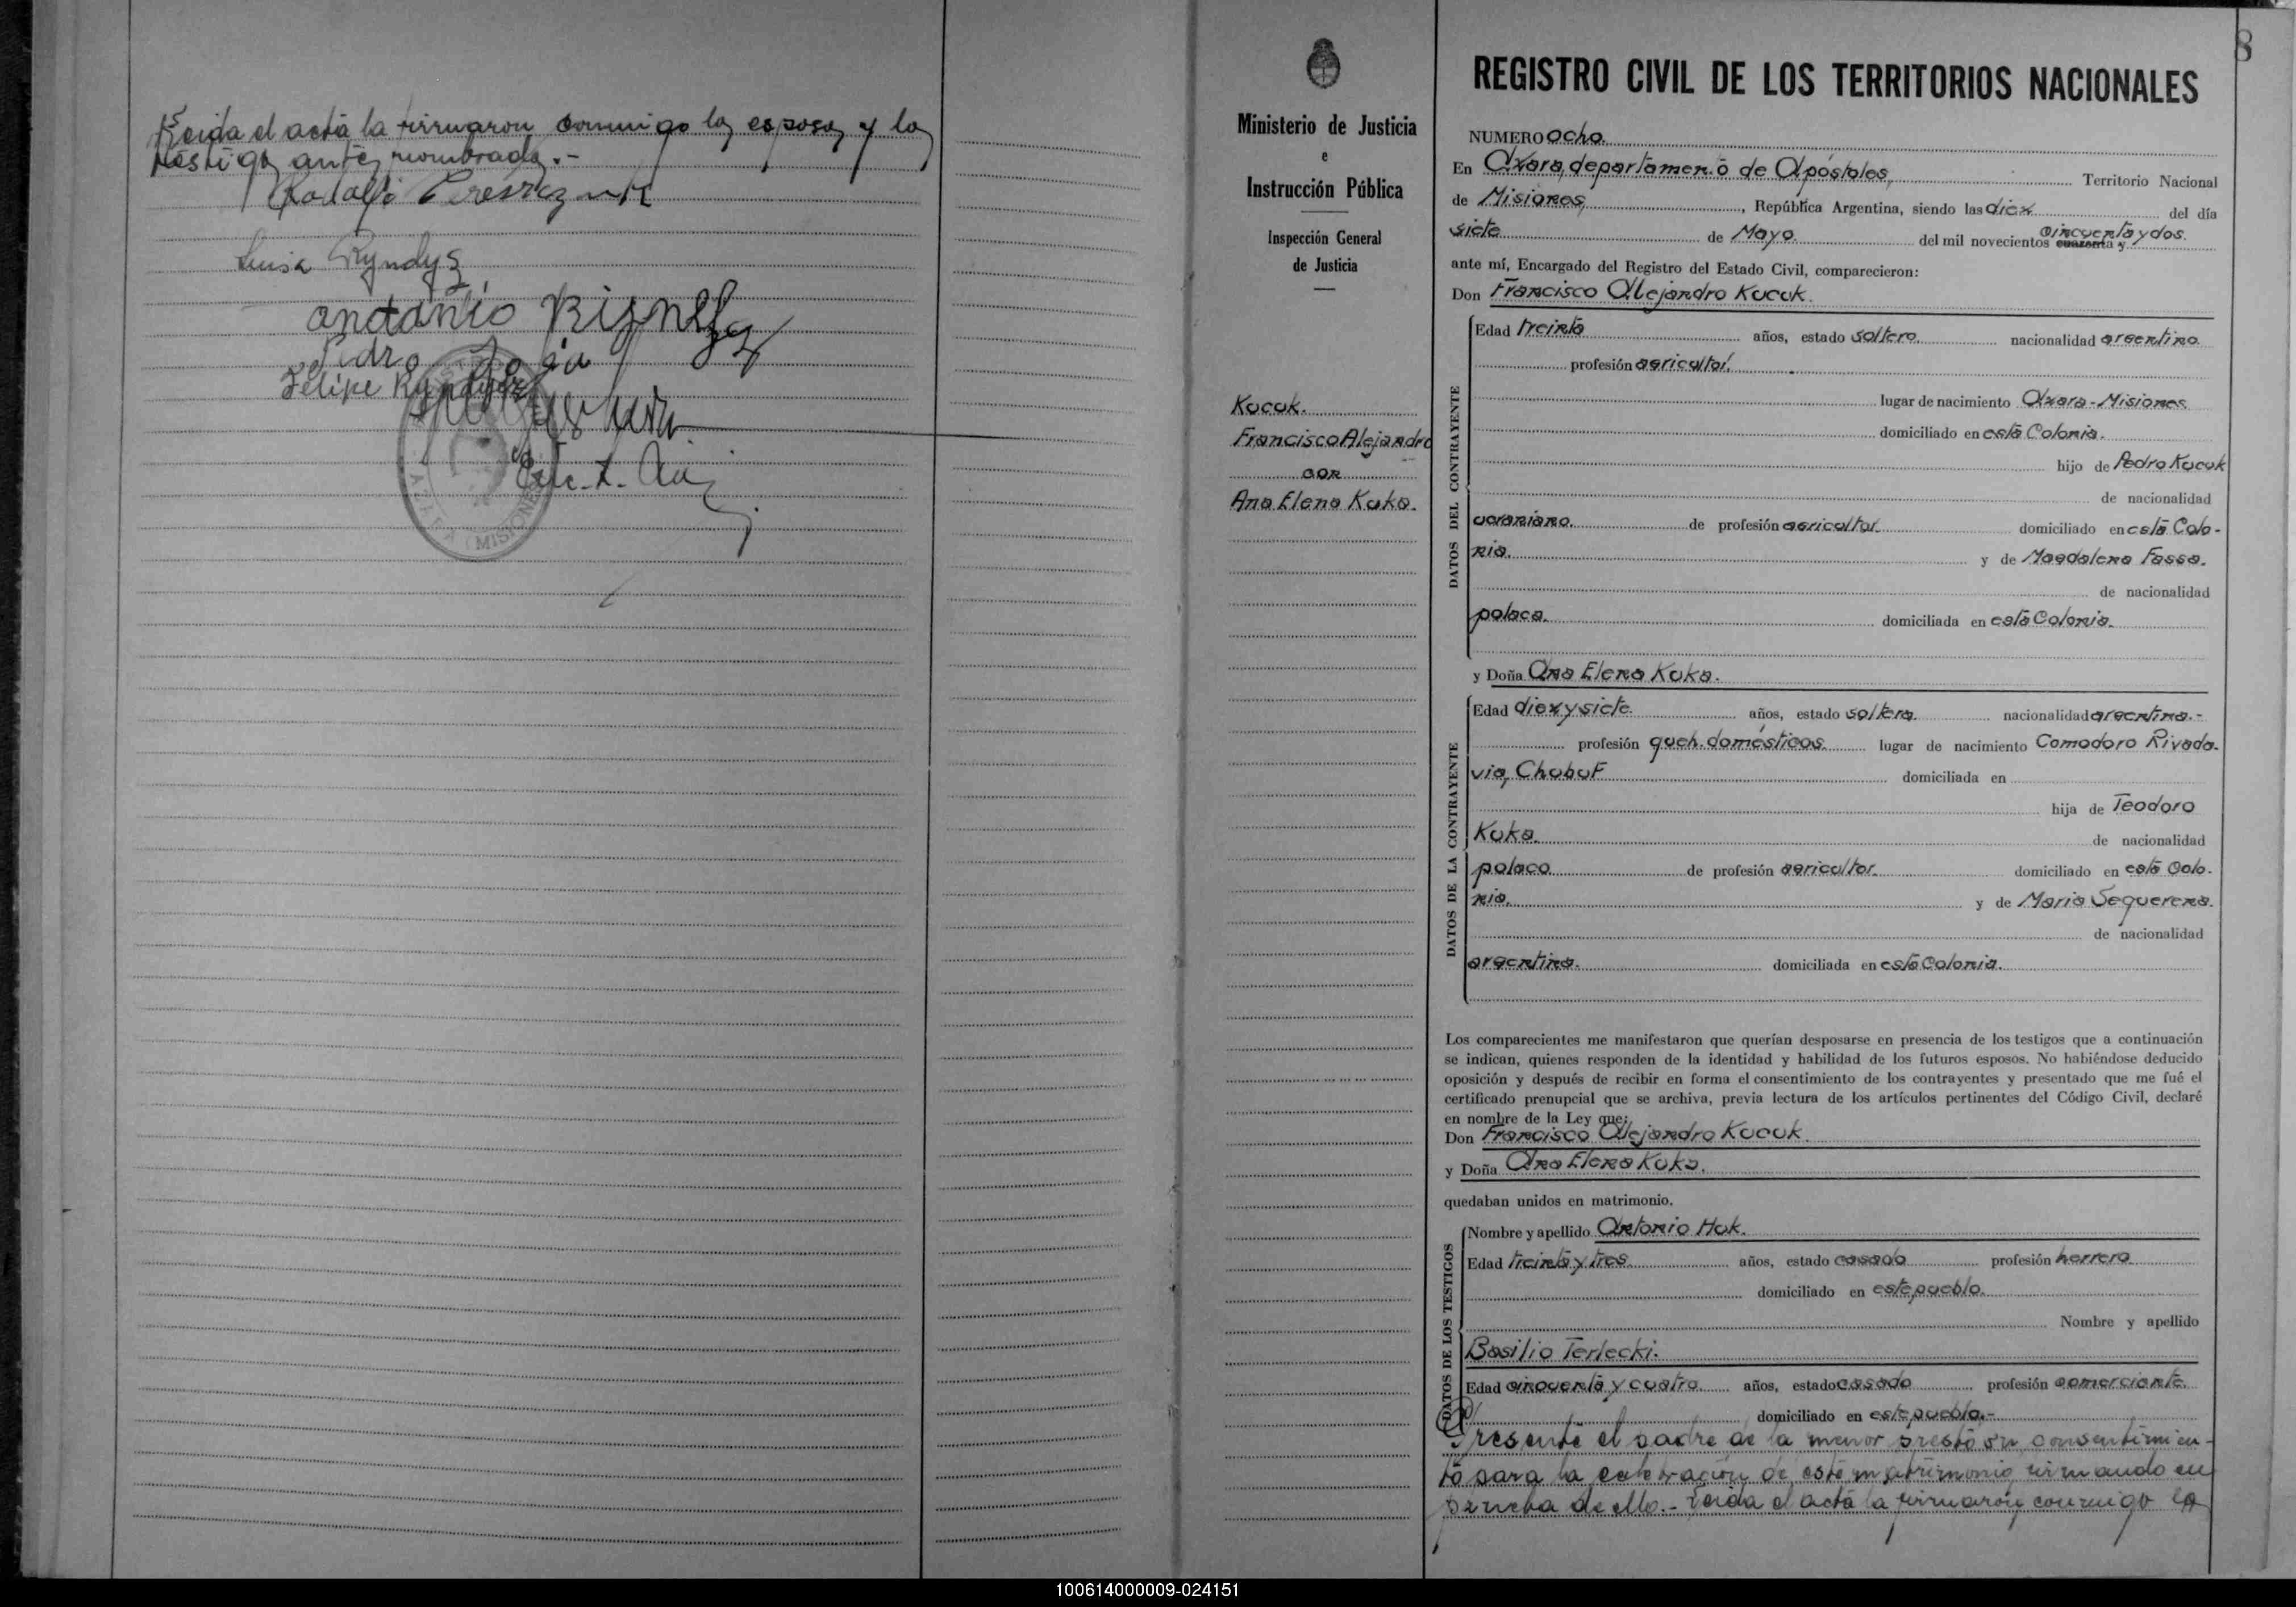 Leida el acta la firmaron conmigo los esposos y los
testigos antes nombrados.-
Rodolfo
Luisa Ryndysz
Pedro
Felipe
AZARA (MISIONES)
8
Ministerio de Justicia
e
Instrucción Pública
Inspección General
de Justicia
Kucuk.
Francisco Alejandro
con
Ana Elena Kuka.
REGISTRO CIVIL DE LOS TERRITORIOS NACIONALES
NUMERO ocho.
En Azara, departamento de Apóstoles, Territorio Nacional
de Misiones, República Argentina, siendo las diez del día
siete de Mayo del mil novecientos cuarenta y cincuenta y dos.
ante mí, Encargado del Registro del Estado Civil, comparecieron:
Don Francisco Alejandro Kucuk.
DATOS DEL CONTRAYENTE
Edad treinta años, estado soltero nacionalidad argentino
profesión agricultor.
lugar de nacimiento Azara-Misiones
domiciliado en esta Colonia.
hijo de Pedro Kucuk
de nacionalidad
ucraniano. de profesión agricultor domiciliado en esta Colo-
nia. y de Magdalena Fassa.
de nacionalidad
polaca. domiciliada en esta Colonia.
y Doña Ana Elena Kuka.
DATOS DE LA CONTRAYENTE
Edad diez y siete años, estado soltera nacionalidad argentina.-
profesión queh. domésticos lugar de nacimiento Comodoro Rivada-
via, Chubut domiciliada en
hija de Teodoro
Kuka. de nacionalidad
polaco de profesión agricultor domiciliado en esta Colo-
nia. y de Maria Sequerena.
de nacionalidad
argentina. domiciliada en esta Colonia.
Los comparecientes me manifestaron que querían desposarse en presencia de los testigos que a continuación
se indican, quienes responden de la identidad y habilidad de los futuros esposos. No habiéndose deducido
oposición y después de recibir en forma el consentimiento de los contrayentes y presentado que me fué el
certificado prenupcial que se archiva, previa lectura de los artículos pertinentes del Código Civil, declaré
en nombre de la Ley que:
Don Francisco Alejandro Kucuk.
y Doña Ana Elena Kuka.
quedaban unidos en matrimonio.
DATOS DE LOS TESTIGOS
Nombre y apellido Antonio Huk.
Edad treinta y tres años, estado casado profesión herrero
domiciliado en este pueblo.
Nombre y apellido
Basilio Terlecki.
Edad cincuenta y cuatro años, estado casado profesión comerciante
domiciliado en este pueblo.-
Presente el padre de la menor prestó su consentimien-
to para la celebración de este matrimonio firmando en
prueba de ello.- Leida el acta la firmaron conmigo los
100614000009-024151